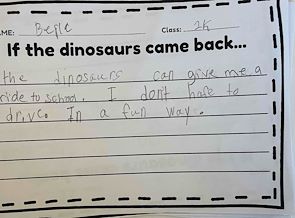 ME: Belle Class: 2K
If the dinosaurs came back...
the dinosaurs can give me a
ride to school. I don't hafe to
drive. In a fun way.